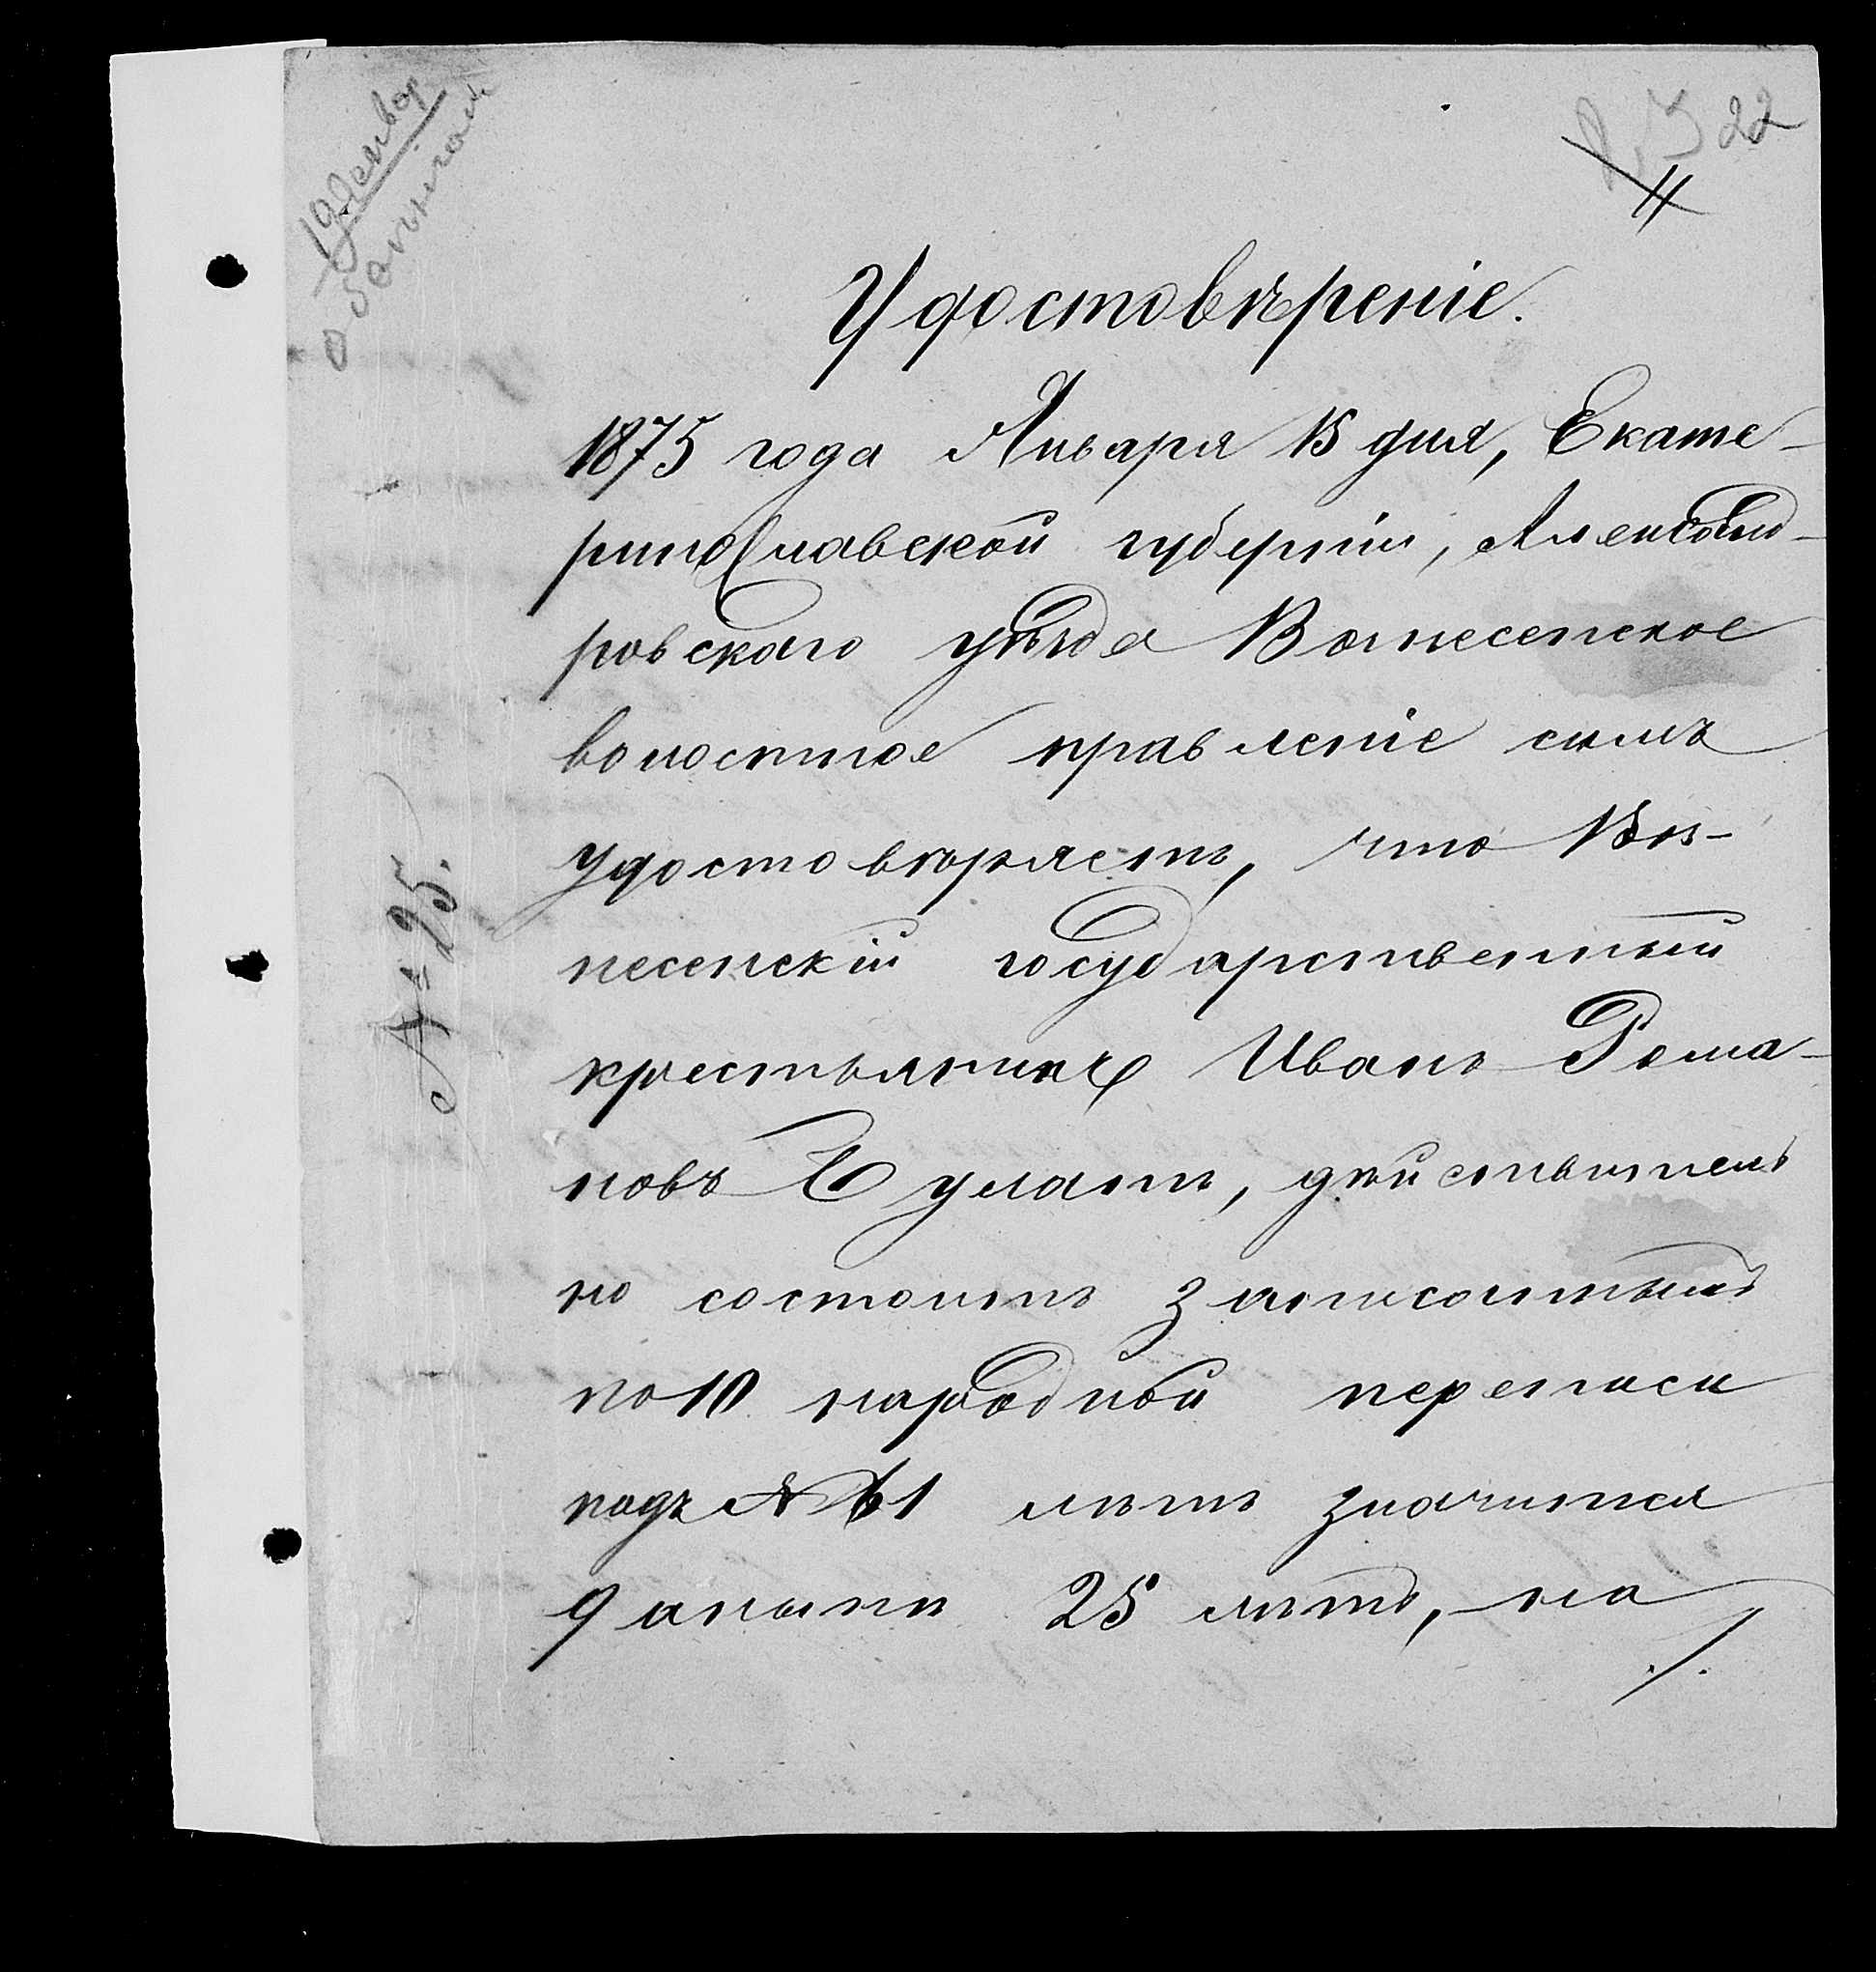 22
11
Удостовѣреніе.
1875 года Января 15 дня, Екате-
ринославской губерніи, Александ-
ровскаго уѣзда Вознесенское
волостное правленіе симъ
удостовѣряетъ, что Воз-
несенскій государственный
крестьянинъ Иванъ Рома-
новъ Булатъ, дѣйствитель
но состоитъ записаннымъ
по 10 народной переписи
подъ № 61 лѣтъ значится
9 а нынѣ 25 лѣтъ, на
./.
№ 25.